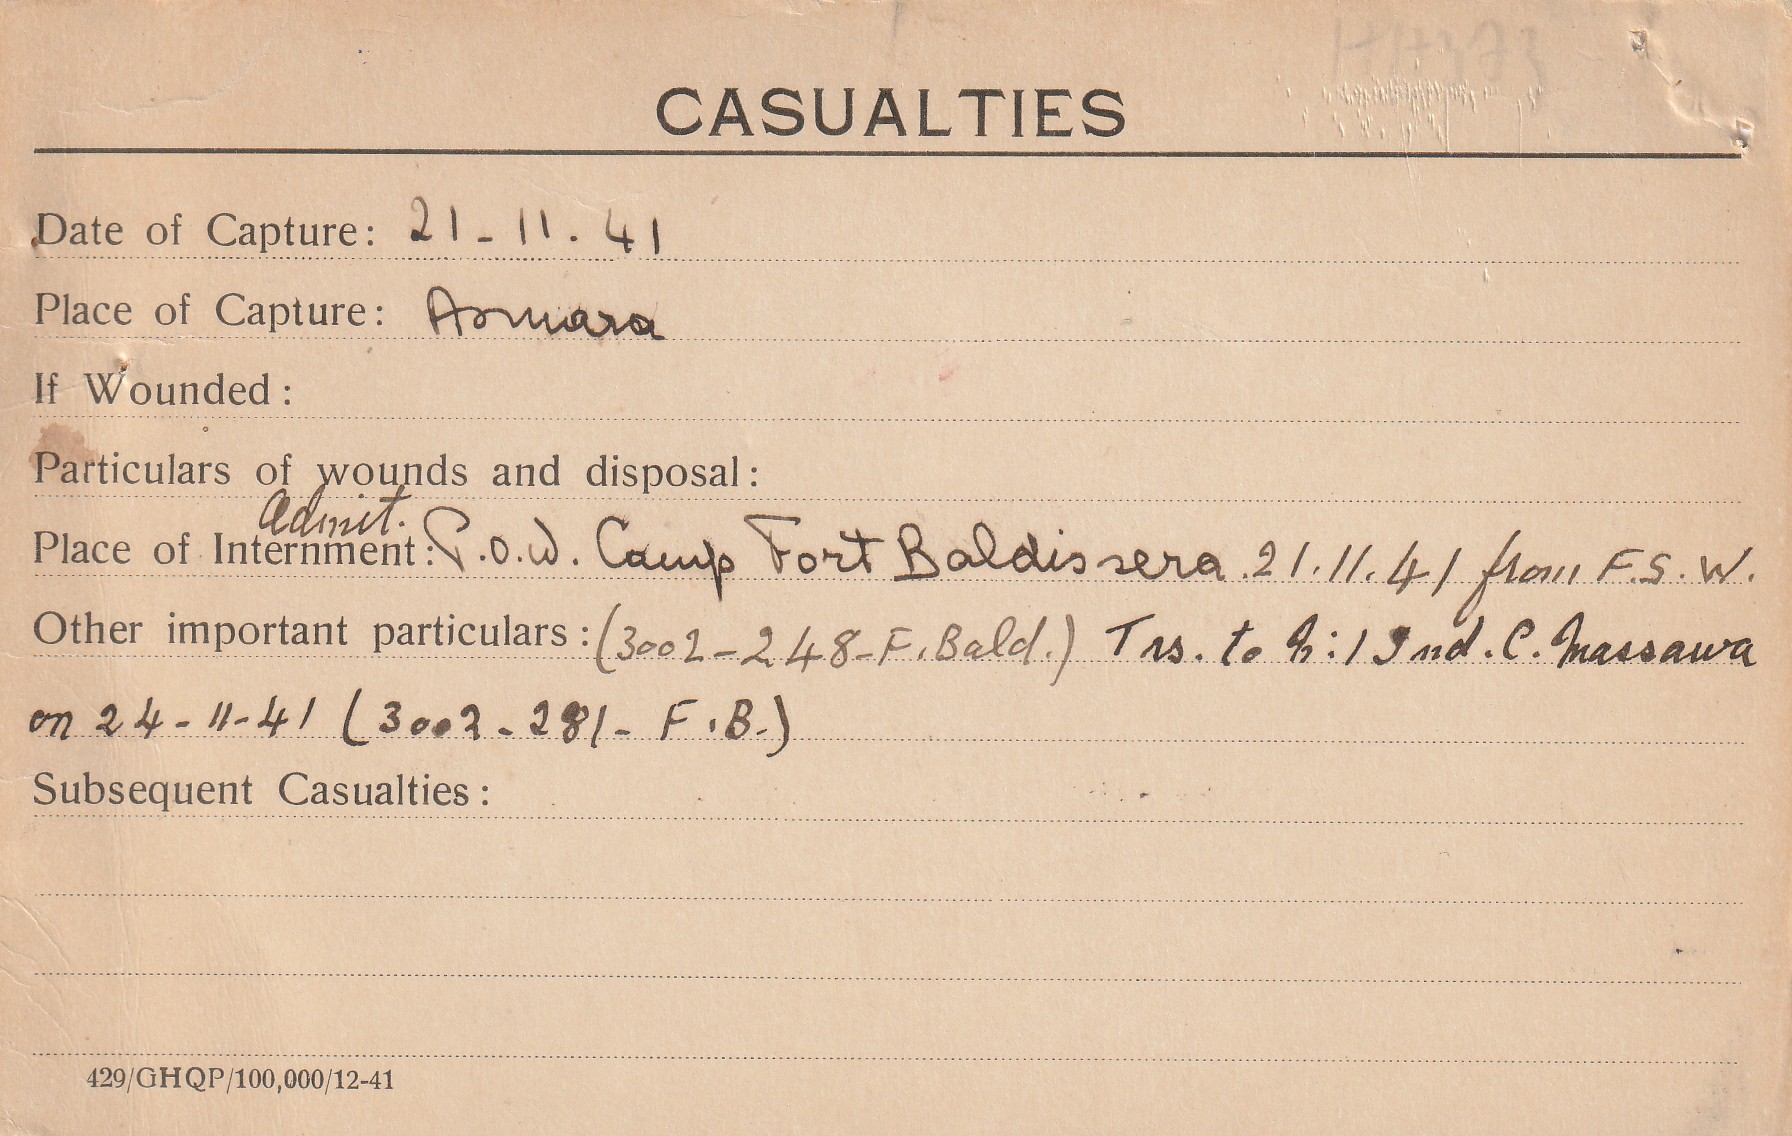 CASUALTIES
Date of Capture: 21-11.41
Place of Capture: Asmara
If Wounded:
Particulars of wounds and disposal:
Admit.
Place of Internment: P.O.W. Camp Fort Baldissera 21.11.41 from F.S.W.
Other important particulars: (3002-248-F.Bald.) Trs. to N:1 Ind.C. Massawa
on 24-11-41 (3002-281- F.B.)
Subsequent Casualties:
429/GHQP/100,000/12-41